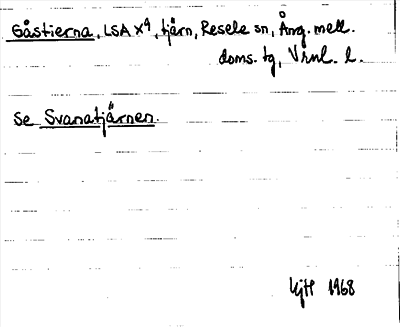 Gåstierna, LSA X9, tjärn, Resele sn, Ång. mell.
doms. tg, Vrnl. l.
Se Svanatjärnen.
1968